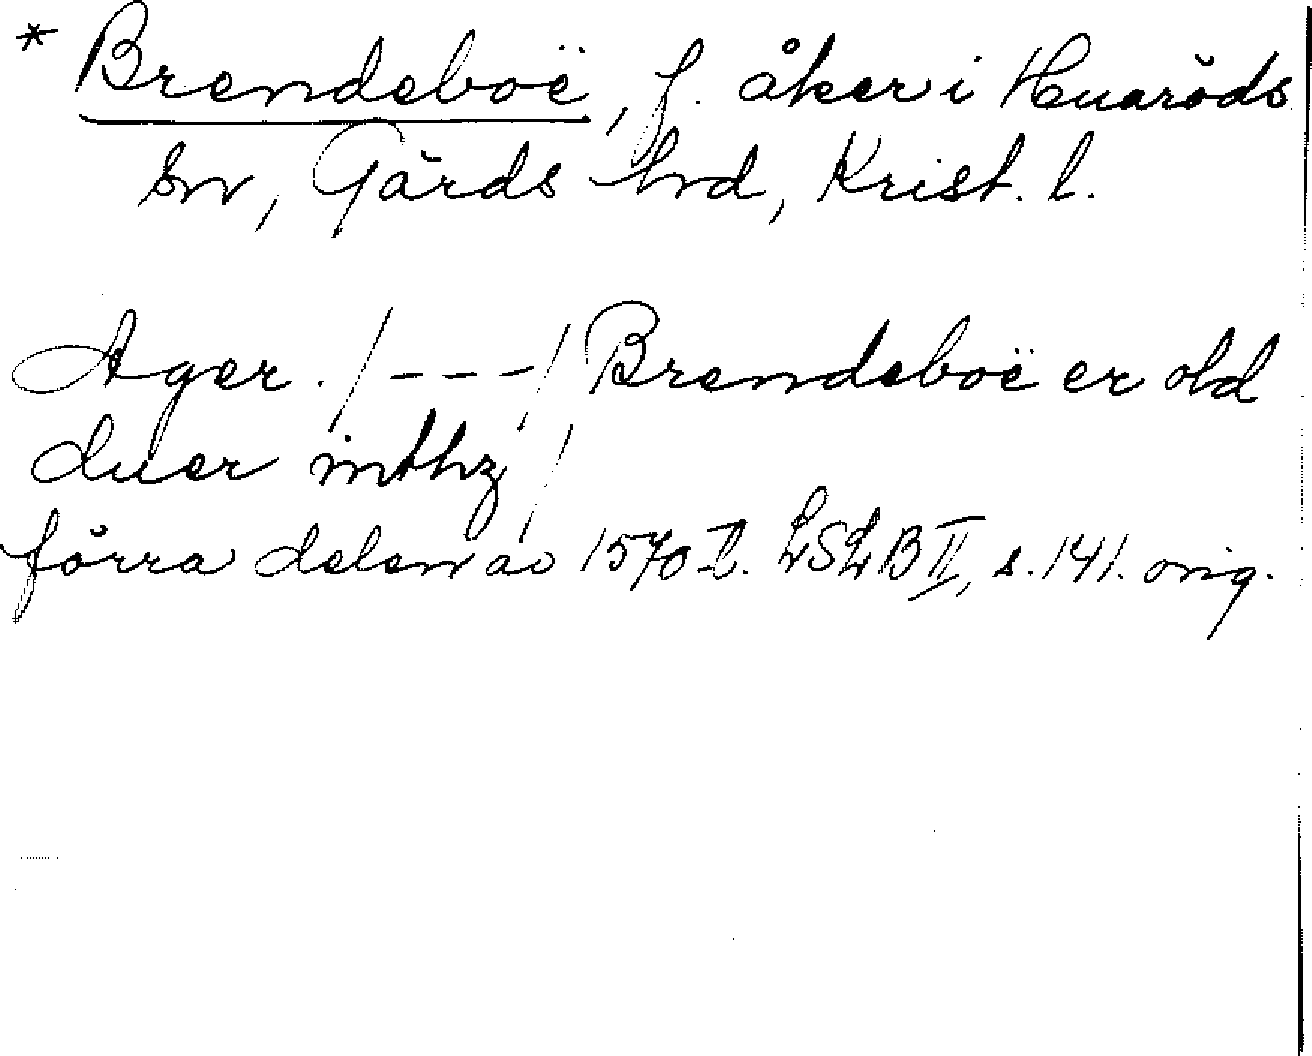 * Brendeboë, f. åker i Huaröds
sn, Gärds hrd, Krist. l.
Ager. /---/ Brendeboë er old
duer inthz /
förra delen av 1570-t. LSLB II, s. 141. orig.